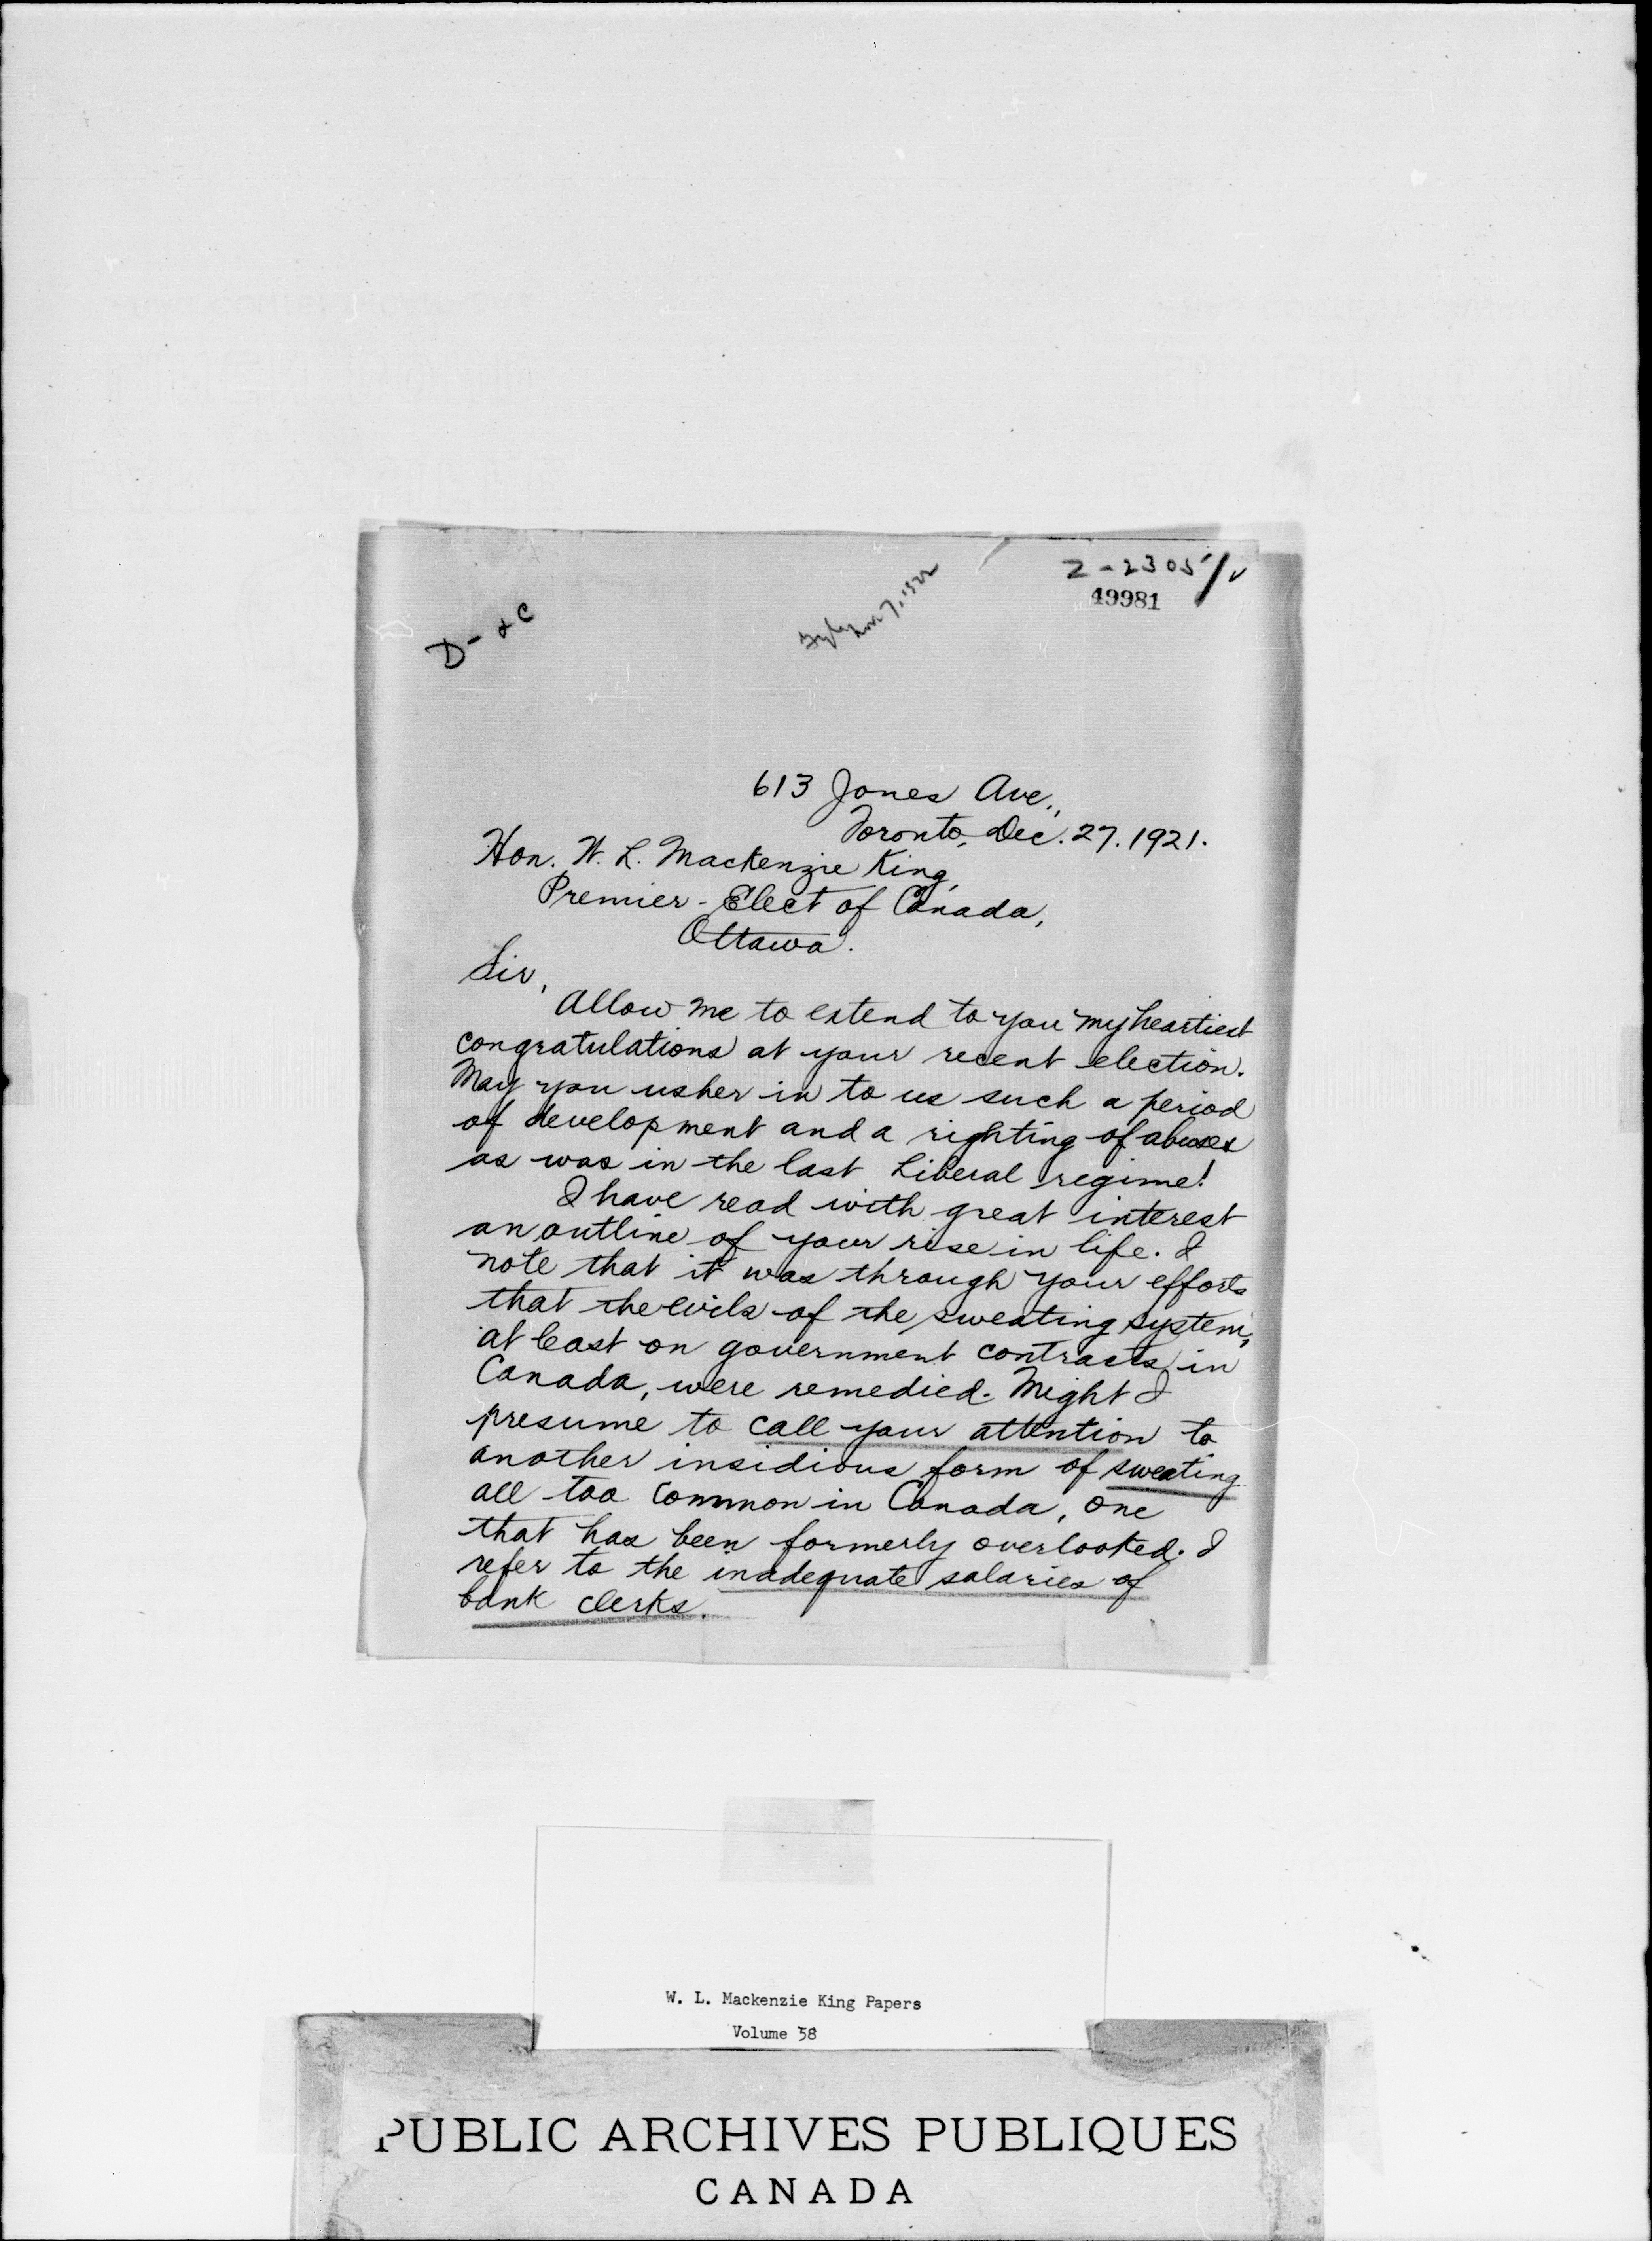 Z-2305/v
49981
D- & C
7, 1922
613 Jones Ave.,
Toronto, Dec. 27. 1921.
Hon. W. L. Mackenzie King,
Premier-Elect of Canada,
Ottawa.
Sir,
Allow me to extend to you my heartiest
congratulations at your recent election.
May you usher in to us such a period
of development and a righting of abuses
as was in the last Liberal regime!
I have read with great interest
an outline of your rise in life. I
note that it was through your efforts
that the evils of the sweating system,
at least on government contracts in
Canada, were remedied. Might I
presume to call your attention to
another insidious form of sweating
all too common in Canada, one
that has been formerly overlooked. I
refer to the inadequate salaries of
bank clerks.
W. L. Mackenzie King Papers
Volume 58
PUBLIC ARCHIVES PUBLIQUES
CANADA